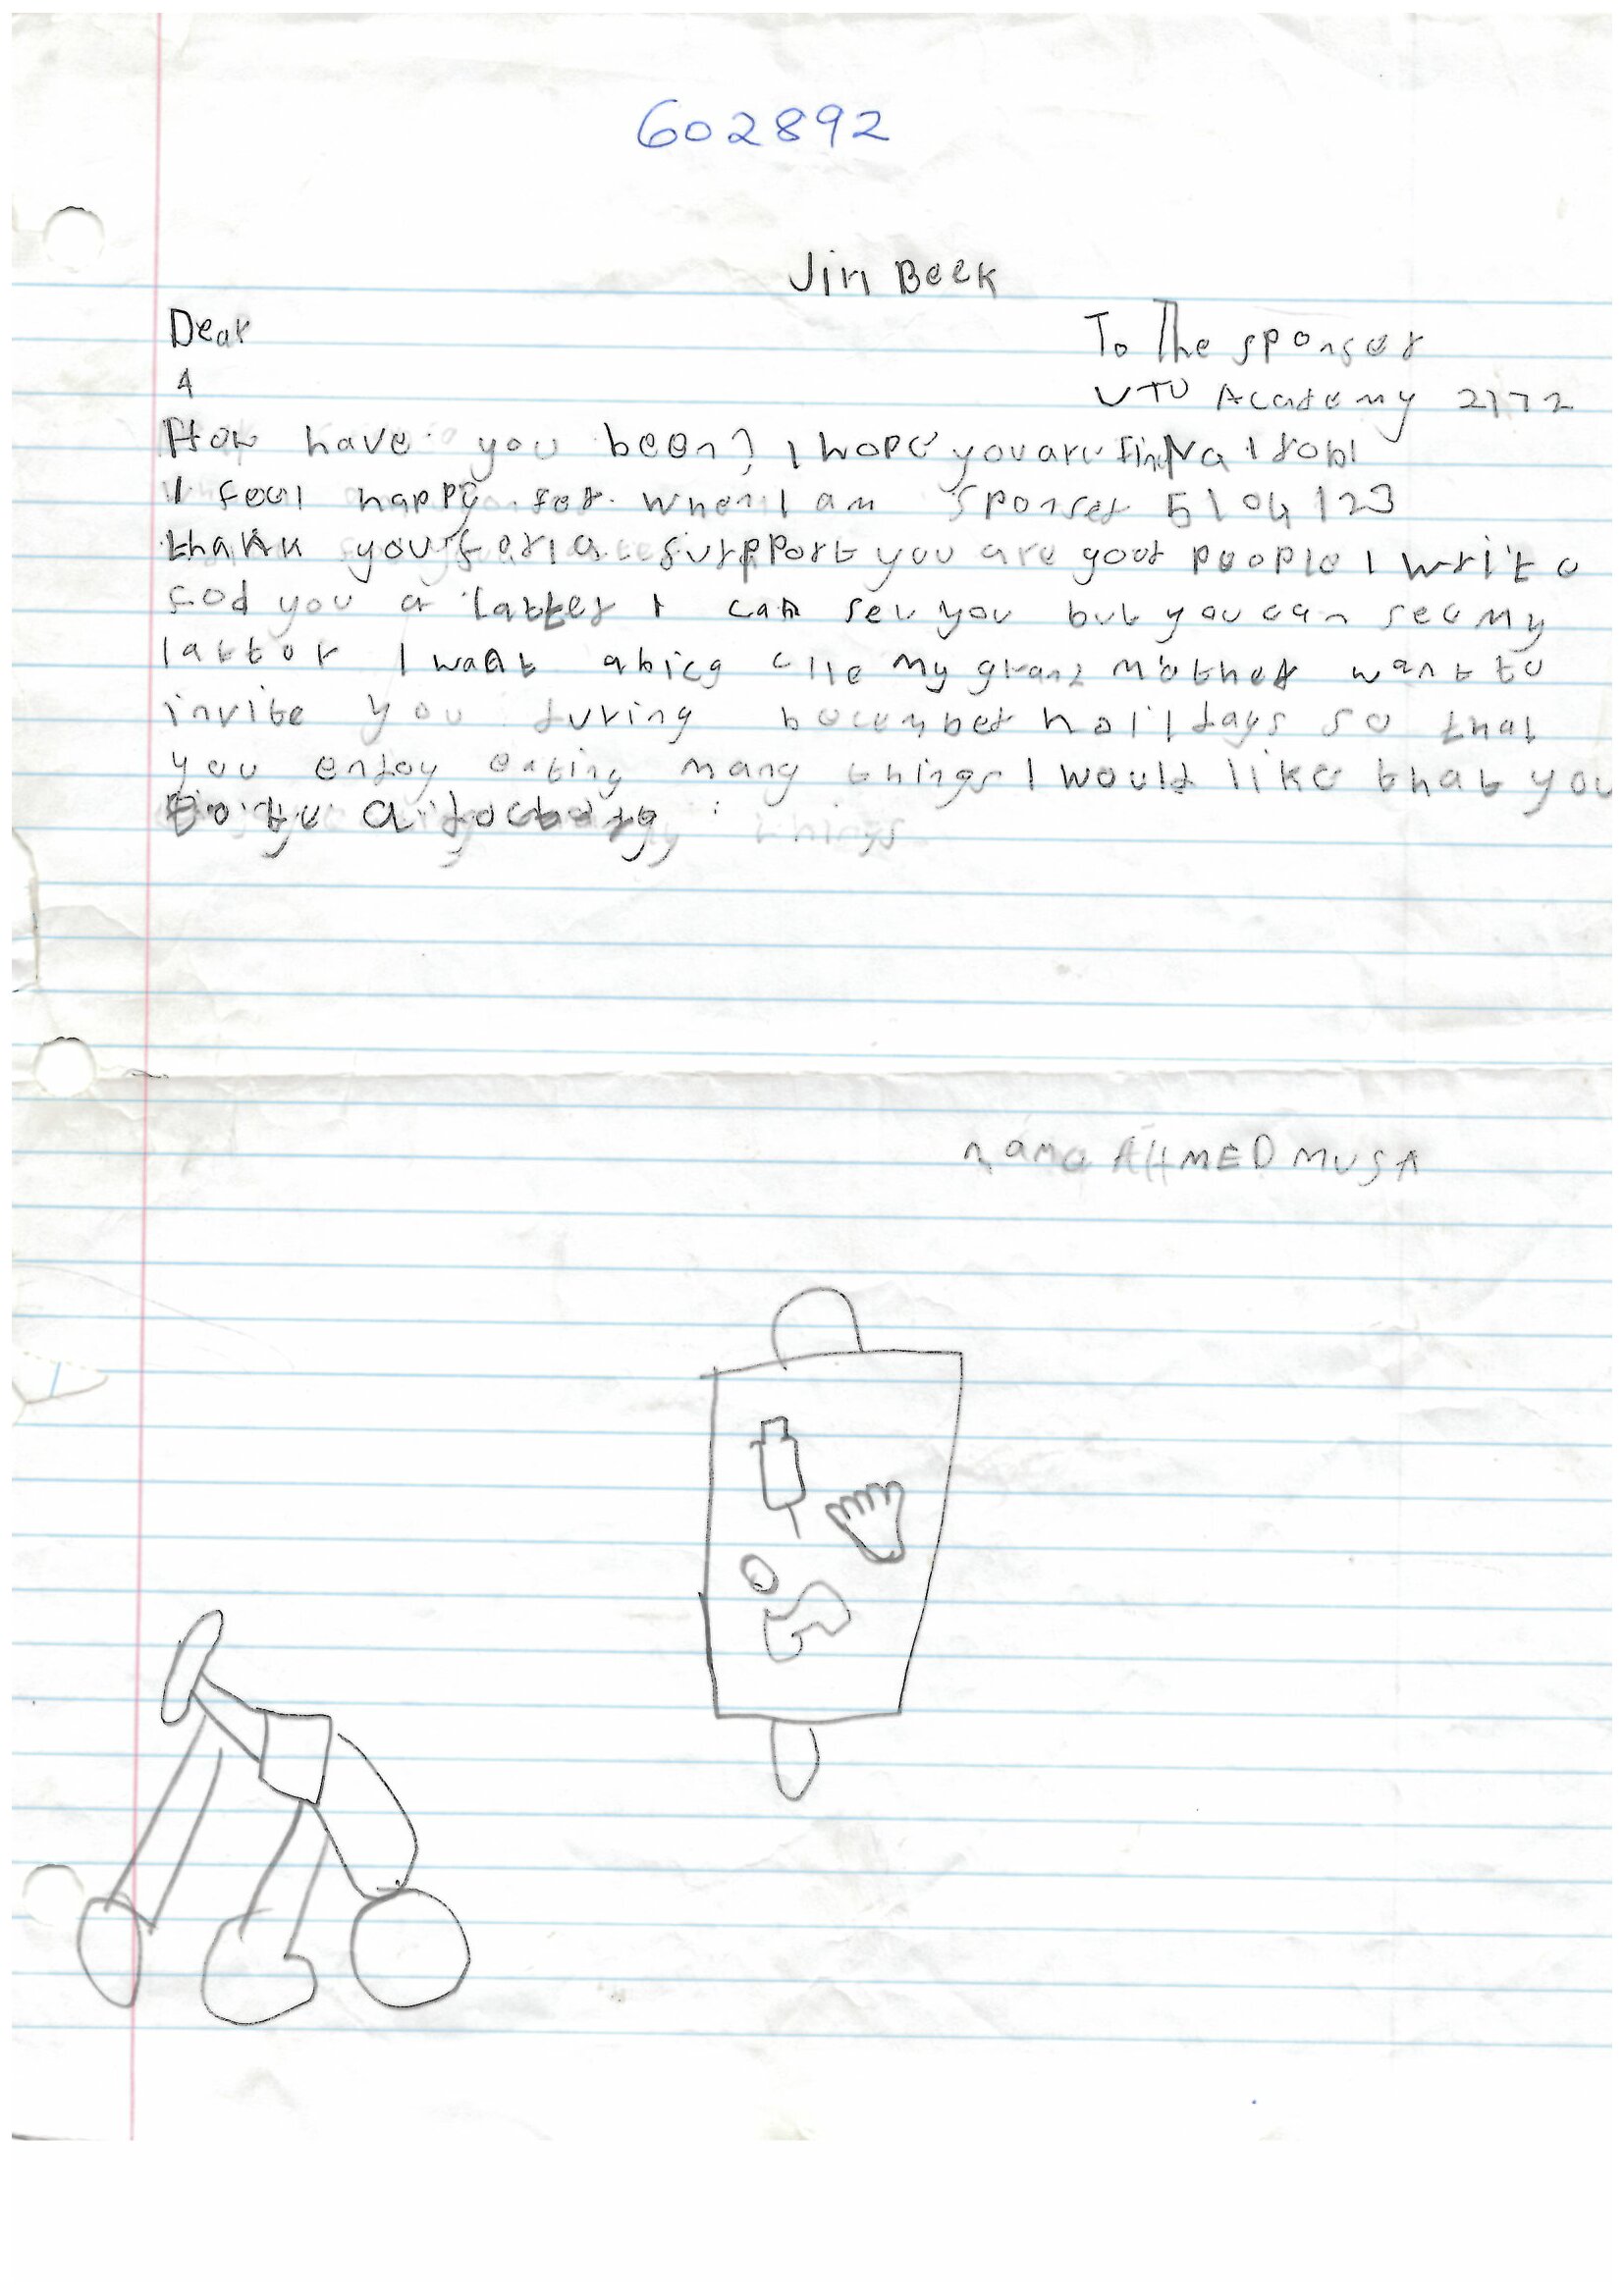 602892
Jim Beek
Dear
To The sponser
UTU Academy 2172
4
How have you been? I hope you are fine
I feel happy for when I am sponser 5/04/23
thank you for a surpport you are good people I write
fod you a latter I can see you but you can see my
latter I want a bicy cile my grand mother want to
invite you during December holidays so that
you enjoy eating many things I would like that you
name AHMED MUSA